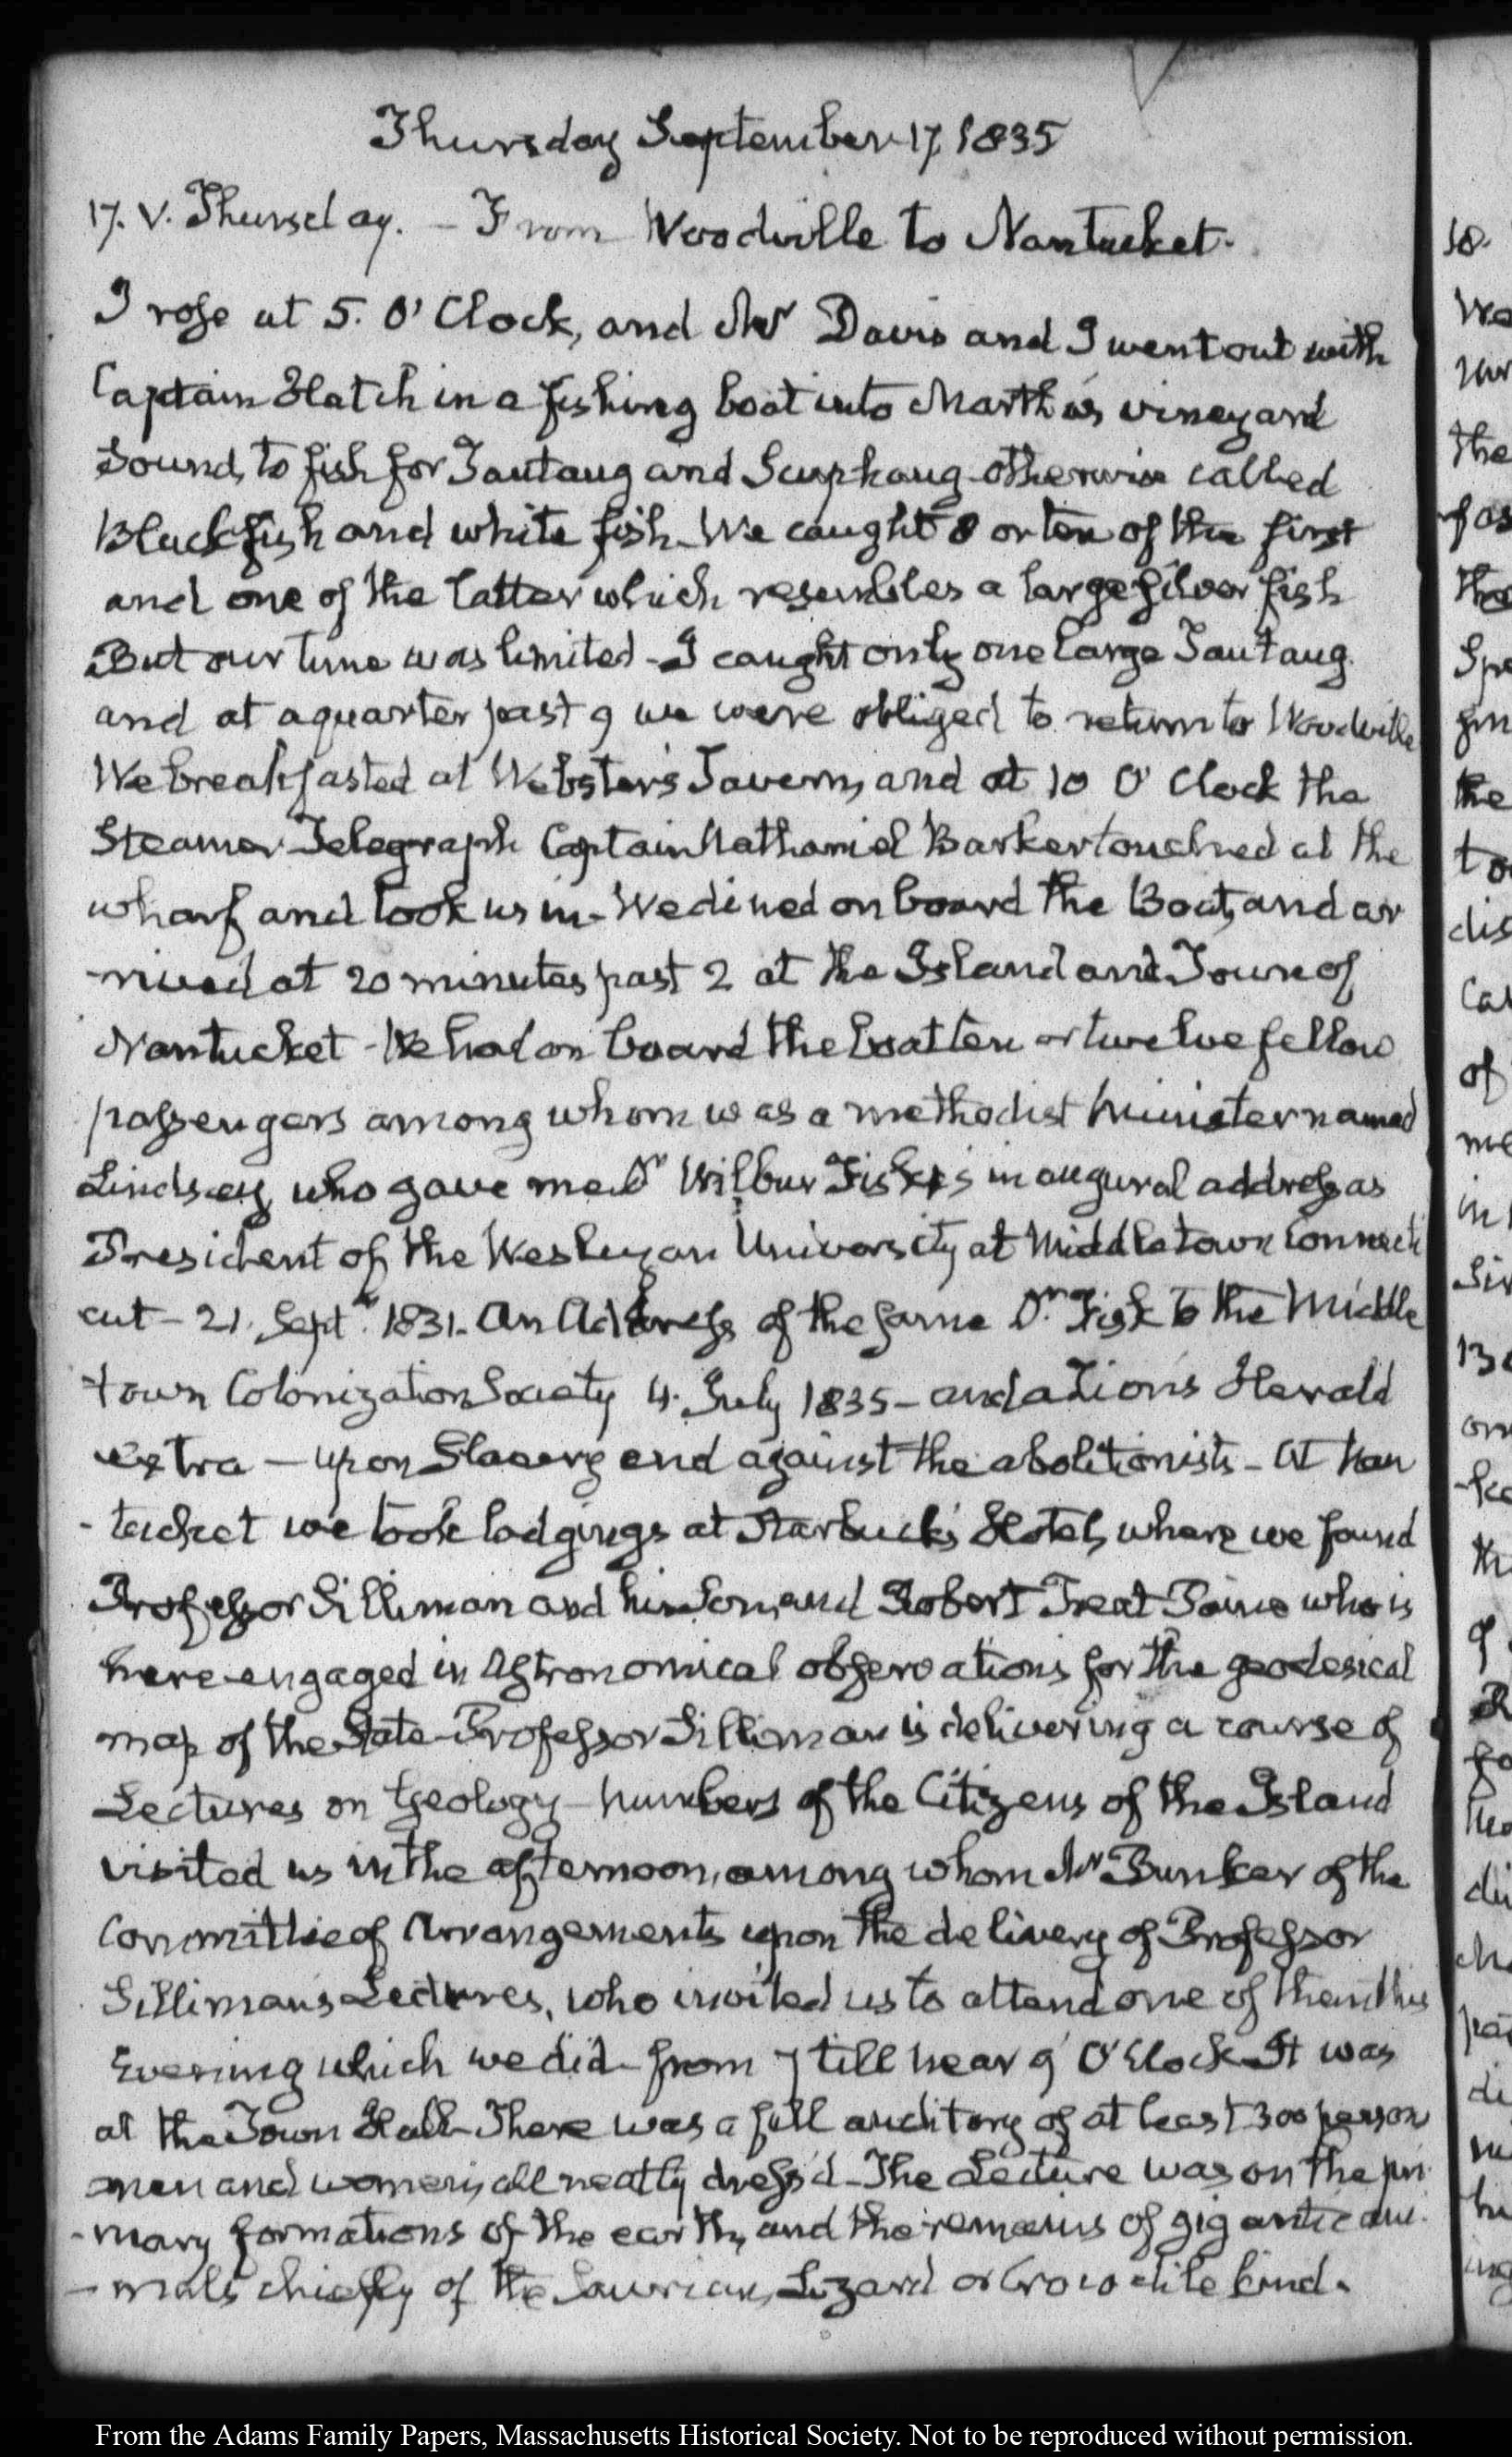 Thursday September 17, 1835
17. V. Thursday. – From Woodville to Nantucket.
I rose at 5. O' Clock, and Mr Davis and I went out with
Captain Hatch in a fishing boat into Martha's vineyard
Sound, to fish for Tautaug and Scuphaug otherwise called
Black fish and white fish. We caught 8 or ten of the first
and one of the latter which resembles a large silver fish
But our time was limited – I caught only one large Tautaug
and at a quarter past 9 we were obliged to return to Woodville
We breakfasted at Webster's Tavern, and at 10 O' Clock the
Steamer Telegraph Captain Nathaniel Barker touched at the
wharf and took us in – We dined on board the Boat, and ar
-rived at 20 minutes past 2 at the Island and Town of
Nantucket – We had on board the boat ten or twelve fellow
passengers among whom was a methodist Minister named
Lindsey, who gave me Dr Wilbur Fisk's inaugural address as
President of the Wesleyan University at Middletown Connecti
cut – 21. Septr 1831. An Address of the same Dr Fisk to the Middle
town Colonization Society 4. July 1835 – and a Zion's Herald
extra – upon Slavery and against the abolitionists – At Nan
-tucket we took lodgings at Starbuck's Hotel, where we found
Professor Silliman and his Son, and Robert Treat Paine who is
here engaged in Astronomical observations for the geodesical
map of the State – Professor Silliman is delivering a course of
Lectures on Geology – Numbers of the Citizens of the Island
visited us in the afternoon, among whom Mr Bunker of the
Committee of Arrangements upon the delivery of Professor
Silliman's Lectures, who invited us to attend one of them this
Evening which we did from 7 till near 9 O'Clock – It was
at the Town Hall – There was a full auditory of at least 300 persons
men and women, all neatly dress'd – The Lecture was on the pri
-mary formations of the earth, and the remains of gigantic ani
-mals chiefly of the Saurian, Lizard or Crocodile kind.
18.
the
the
the
to
of
in
From the Adams Family Papers, Massachusetts Historical Society. Not to be reproduced without permission.